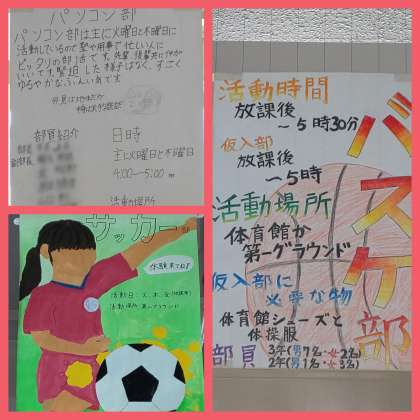 パソコン部
パソコン部は主に火曜日と木曜日に
活動しているので塾や用事で忙しい人に
ピッタリの部活です。先輩、後輩共に仲が
いいです。緊迫した様子はなく、すごく
ゆるやかなふんいきです
部員紹介
部長
副部長
日時
主に火曜日と木曜日
4:00〜5:00
活動場所
サッカー
体験来てね!
活動日:火、木、金
活動場所 第一グラウンド
バスケ部
活動時間
放課後
〜5時30分
仮入部
放課後
〜5時
活動場所
体育館か
第一グラウンド
仮入部に
必要な物
体育館シューズと
体操服
部員 3年(男7名・女2名)
2年(男1名・女3名)